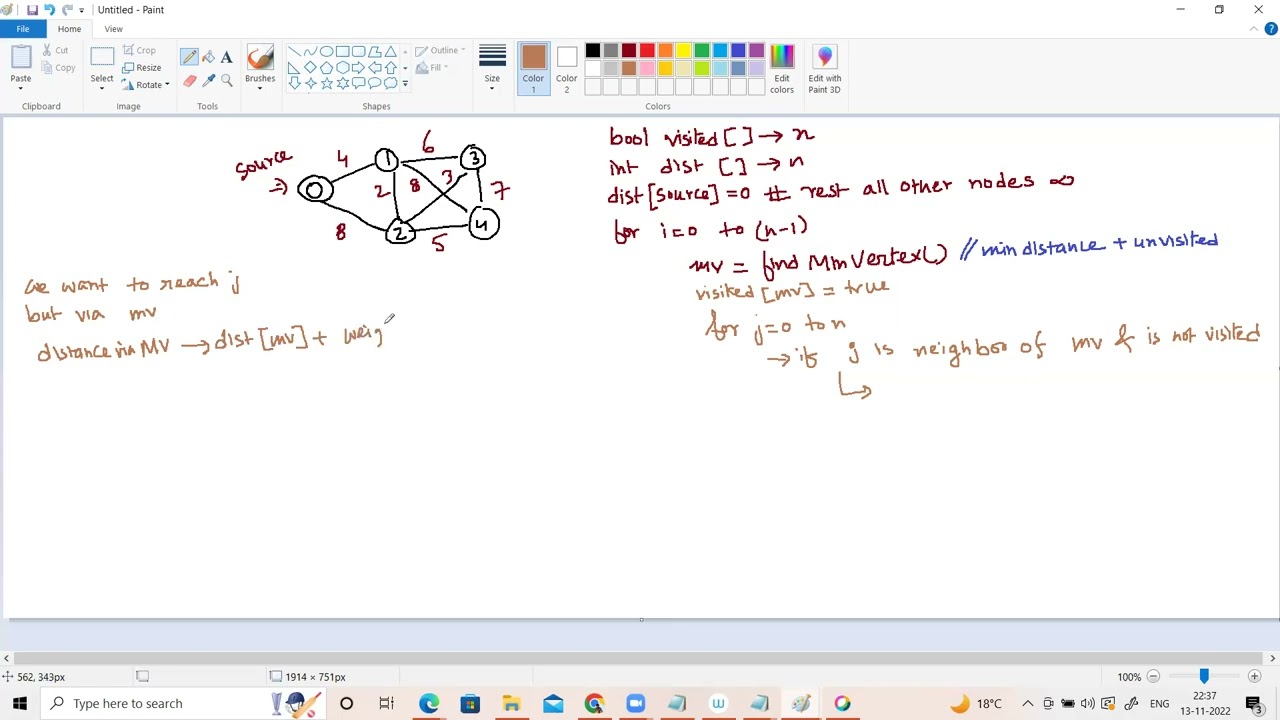 Untitled - Paint
File Home View
Paste Cut Copy Clipboard
Select Crop Resize Rotate Image
Tools
Brushes
Outline Fill Shapes
Size
Color 1 Color 2 Edit colors Colors
Edit with Paint 3D
source
4 6
0 1 3
2 8 3 7
8 2 5 4
bool visited [ ] → n
int dist [ ] → n
dist[source]=0 # rest all other nodes ∞
for i=0 to (n-1)
mv = find MinVertex() // min distance + unvisited
visited [mv] = true
for j=0 to n
→ if j is neighbor of mv & is not visited
we want to reach j
but via mv
distance via MV → dist [mv] + weig
562, 343px
1914 × 751px
100%
Type here to search
18°C
ENG
22:37
13-11-2022
3